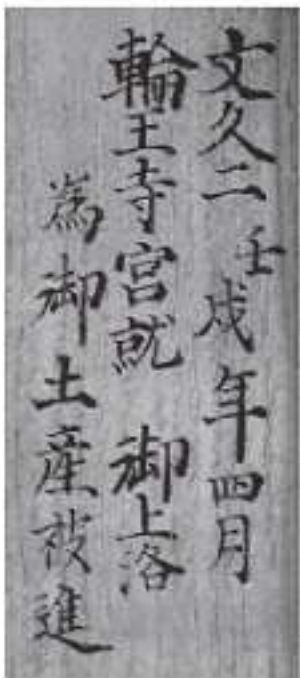 文久二壬戌年四月
輪王寺宮就　御上洛
為御土産被進